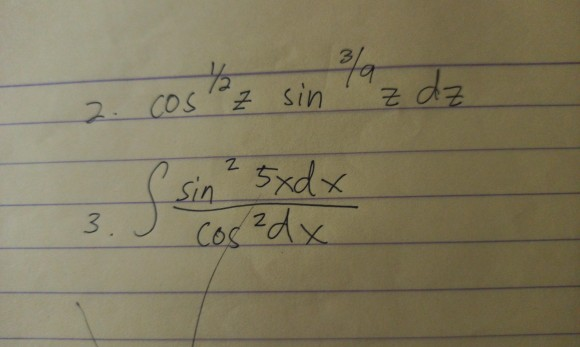 2. cos^1/2 z sin^3/9 z dz
3. ∫ sin^2 5xdx
cos^2 dx